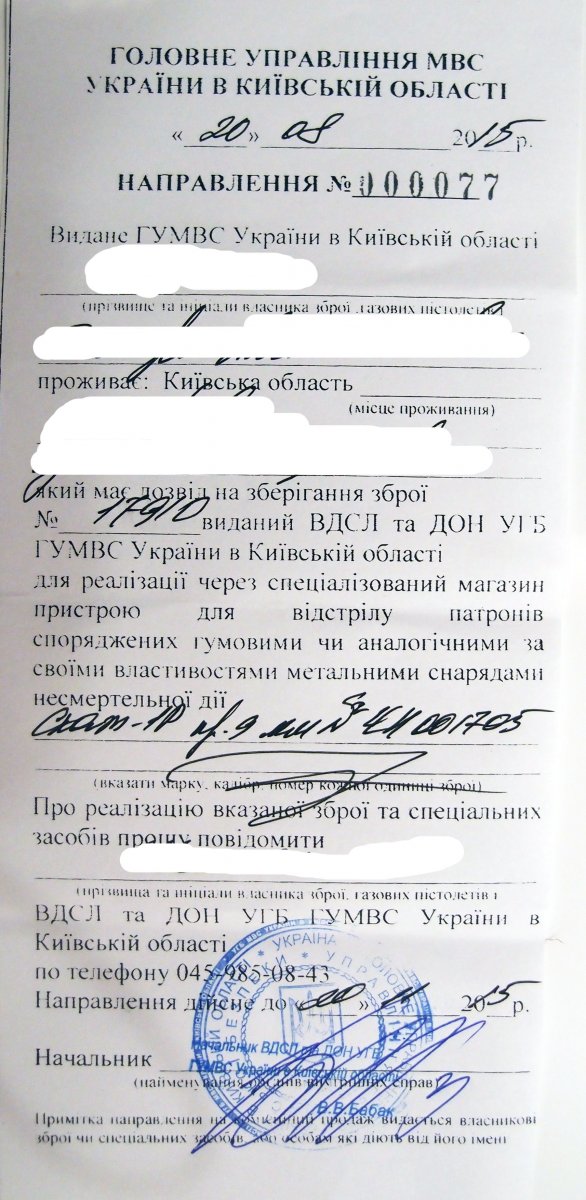 ГОЛОВНЕ УПРАВЛІННЯ МВС
УКРАЇНИ В КИЇВСЬКІЙ ОБЛАСТІ
« 20 » 08 2015 р.
НАПРАВЛЕННЯ № 000077
Видане ГУМВС України в Київській області
(прізвище та ініціали власника зброї, газових пістолетів)
проживає: Київська область
(місце проживання)
який має дозвіл на зберігання зброї
№ 17910 виданий ВДСЛ та ДОН УГБ
ГУМВС України в Київській області
для реалізації через спеціалізований магазин
пристрою для відстрілу патронів
споряджених гумовими чи аналогічними за
своїми властивостями метальними снарядами
несмертельної дії
9 мм № 001705
(вказати марку, калібр, номер кожної одиниці зброї)
Про реалізацію вказаної зброї та спеціальних
засобів прошу повідомити
(прізвища та ініціали власника зброї, газових пістолетів і
ВДСЛ та ДОН УГБ ГУМВС України в
Київській області
по телефону 045-985-08-43
Направлення дійсне до « 2015 р.
Начальник
Начальник ВДСЛ та ДОН УГБ
ГУМВС України в Київській області
(найменування органів внутрішніх справ)
В.В.Бабак
Примітка направлення на комісійний продаж видається власникові
зброї чи спеціальних засобів, або особам які діють від його імені